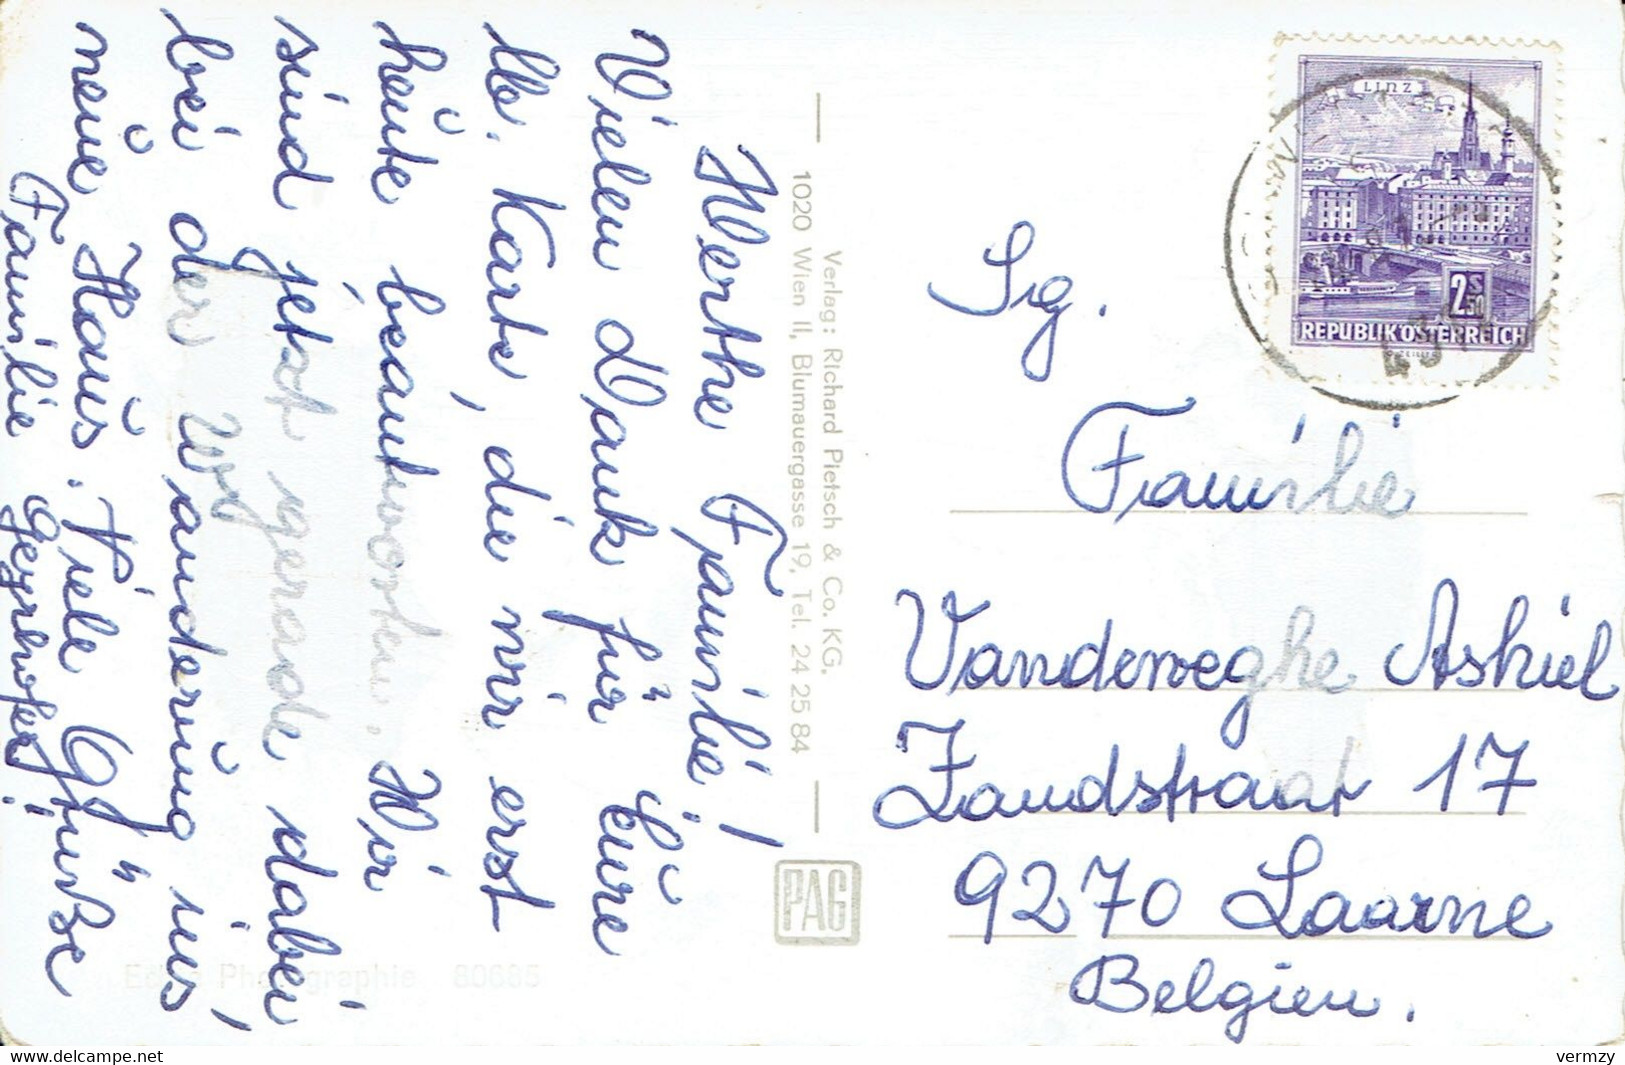 Werthe Familie!
Vielen Dank für Eure
lb. Karte, die wir erst
heute beantworten. Wir
sind jetzt gerade dabei
bei der Wanderung ins
neue Haus. Viele Grüße
Familie
Verlag: Richard Pietsch & Co. KG.
1020 Wien II, Blumauergasse 19, Tel. 24 25 84
PAG
Photographie 80685
LINZ
2S 50
REPUBLIK ÖSTERREICH
Sg.
Familie
Vandeweghe Askiel
Zandstraat 17
9270 Laarne
Belgien.
www.delcampe.net
vermzy